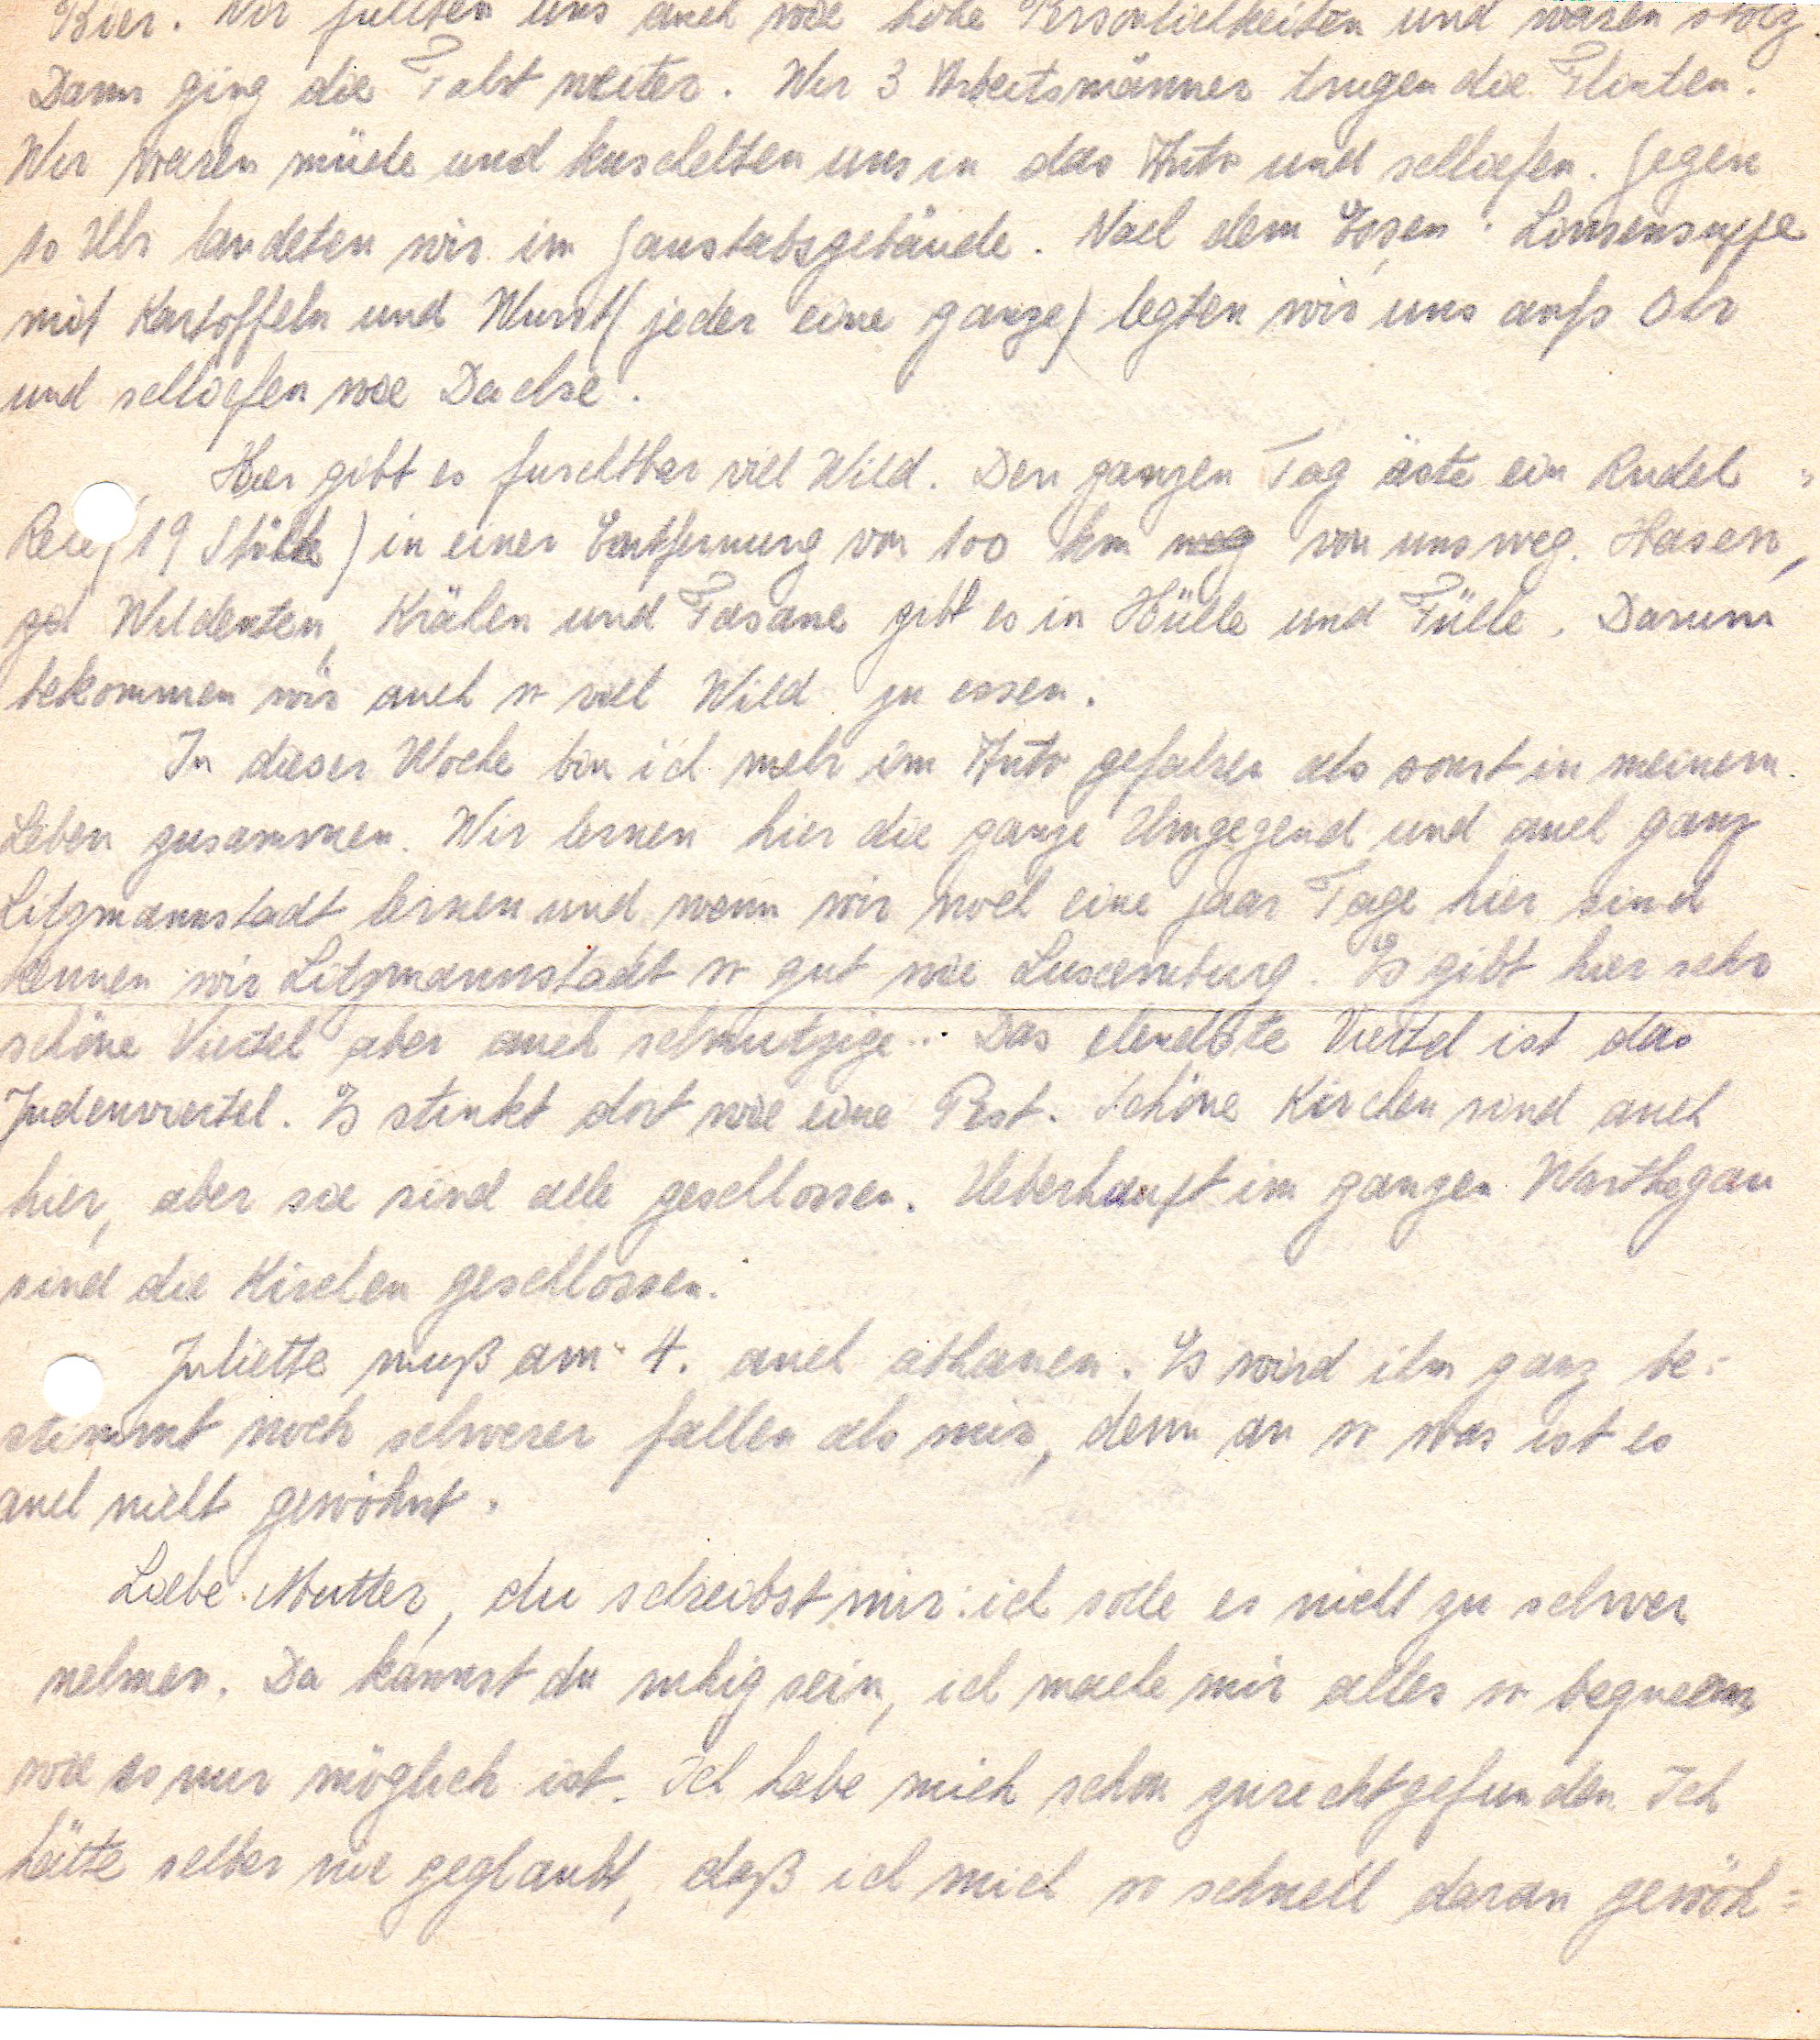 Bier. Wir fühlten uns auch wie hohe Persönlichkeiten und waren stolz.
Dann ging die Fahrt weiter. Wir 3 Arbeitsmänner trugen die Flinten.
Wir waren müde und kuschelten uns in das Auto und schliefen. Gegen
10 Uhr landeten wir im Gaustabsgebäude. Nach dem Essen: Linsensuppe
mit Kartoffeln und Wurst (jeder eine ganze) legten wir uns aufs Ohr
und schliefen wie Dachse.
Hier gibt es furchtbar viel Wild. Den ganzen Tag äste ein Rudel
Rehe (19 Stück) in einer Entfernung von 100 km weg von uns weg. Hasen,
Wildenten, Krähen und Fasane gibt es in Hülle und Fülle. Darum
bekommen wir auch so viel Wild zu essen.
In dieser Woche bin ich mehr im Auto gefahren als sonst in meinem
Leben zusammen. Wir lernen hier die ganze Umgegend und auch ganz
Litzmannstadt lernen und wenn wir noch eine paar Tage hier sind
kennen wir Litzmannstadt so gut wie Luxemburg. Es gibt hier sehr
schöne Viertel aber auch schmutzige.. Das elendste Viertel ist das
Judenviertel. Es stinkt dort wie eine Pest. Schöne Kirchen sind auch
hier, aber sie sind alle geschlossen. Ueberhaupt im ganzen Warthegau
sind die Kirchen geschlossen.
Juliette muß am 4. auch abhauen. Es wird ihm ganz be=
stimmt noch schwerer fallen als mir, denn an so was ist es
auch nicht gewöhnt.
Liebe Mutter, du schreibst mir: ich solle es nicht zu schwer
nehmen. Da kannst du ruhig sein, ich mache mir alles so bequem
wie es nur möglich ist. Ich habe mich schon zurechtgefunden. Ich
hätte selber nie geglaubt, daß ich mich so schnell daran gewöh=